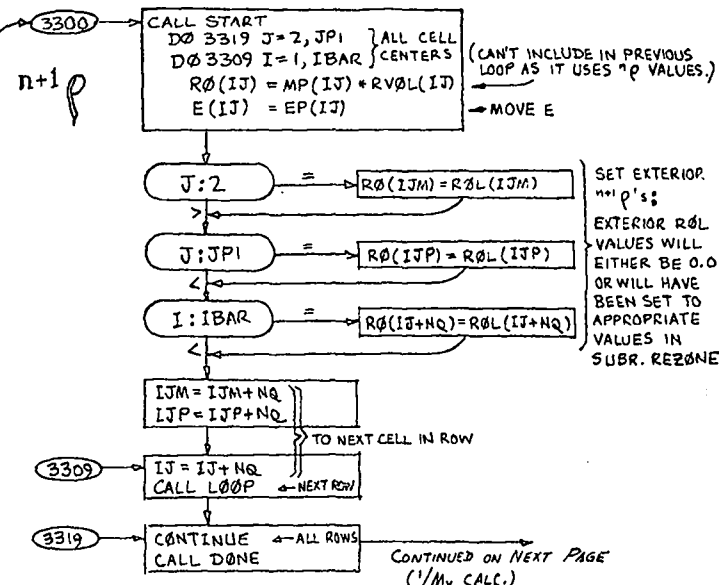 3300
CALL START
DØ 3319 J=2, JP1
DØ 3309 I=1, IBAR
} ALL CELL
CENTERS
RØ(IJ) = MP(IJ) * RVØL(IJ)
E(IJ) = EP(IJ)
(CAN'T INCLUDE IN PREVIOUS
LOOP AS IT USES ⁿρ VALUES.)
← MOVE E
n+1 ρ
J:2
=
RØ(IJM) = RØL(IJM)
>
J:JP1
=
RØ(IJP) = RØL(IJP)
<
I:IBAR
=
RØ(IJ+NQ) = RØL(IJ+NQ)
<
SET EXTERIOR
n+1 ρ's:
EXTERIOR RØL
VALUES WILL
EITHER BE 0.0
OR WILL HAVE
BEEN SET TO
APPROPRIATE
VALUES IN
SUBR. REZØNE
IJM = IJM+NQ
IJP = IJP+NQ
TO NEXT CELL IN ROW
3309
IJ = IJ+NQ
CALL LØØP ← NEXT ROW
3319
CØNTINUE ← ALL ROWS
CALL DØNE
CONTINUED ON NEXT PAGE
(1/Mv CALC.)